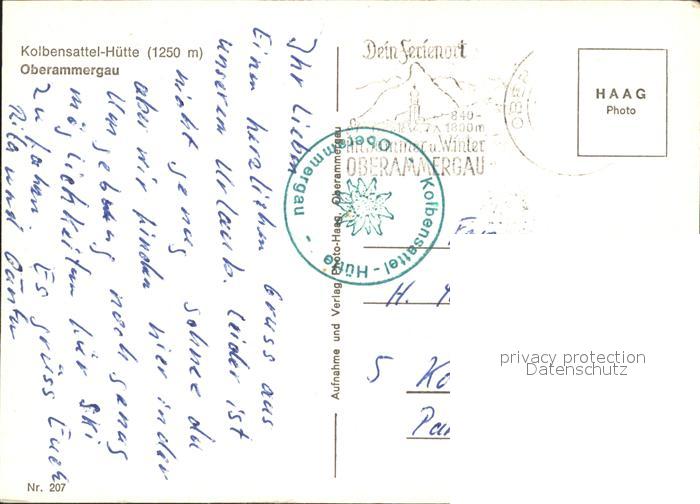 Kolbensattel-Hütte (1250 m)
Oberammergau
Ihr Lieben
Einen herzlichen Gruss aus
unserem Urlaub. Leider ist
nicht genug Schnee da
aber wir finden hier in der
Umgebung noch genug
möglichkeiten für Ski
zu fahren. Es grüss Euch
und Günter
Nr. 207
Aufnahme und Verlag Photo-Haag, Oberammergau
Dein Ferienort
840-
1800m
Sommer u. Winter
OBERAMMERGAU
OBER
Kolbensattel-Hütte -
Oberammergau -
HAAG
Photo
H.
5 Ko
privacy protection
Datenschutz